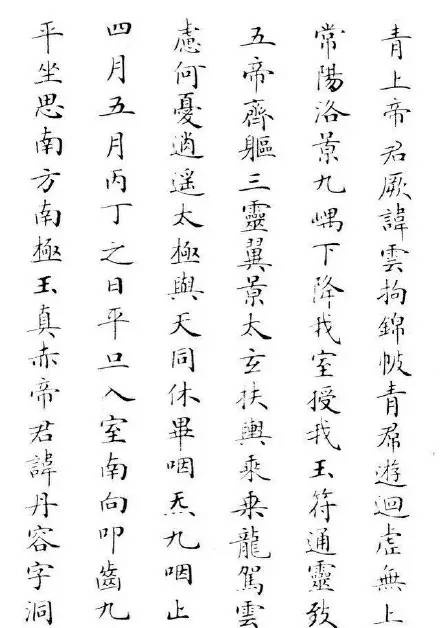 青上帝君厥諱雲拘錦帔青帬遊迴虛無上
常陽洛景九嵎下降我室授我玉符通靈致
五帝齊軀三靈翼景太玄扶輿乘乗龍駕雲
慮何憂逍遥太極與天同休畢咽炁九咽止
四月五月丙丁之日平旦入室南向叩齒九
平坐思南方南極玉真赤帝君諱丹容字洞